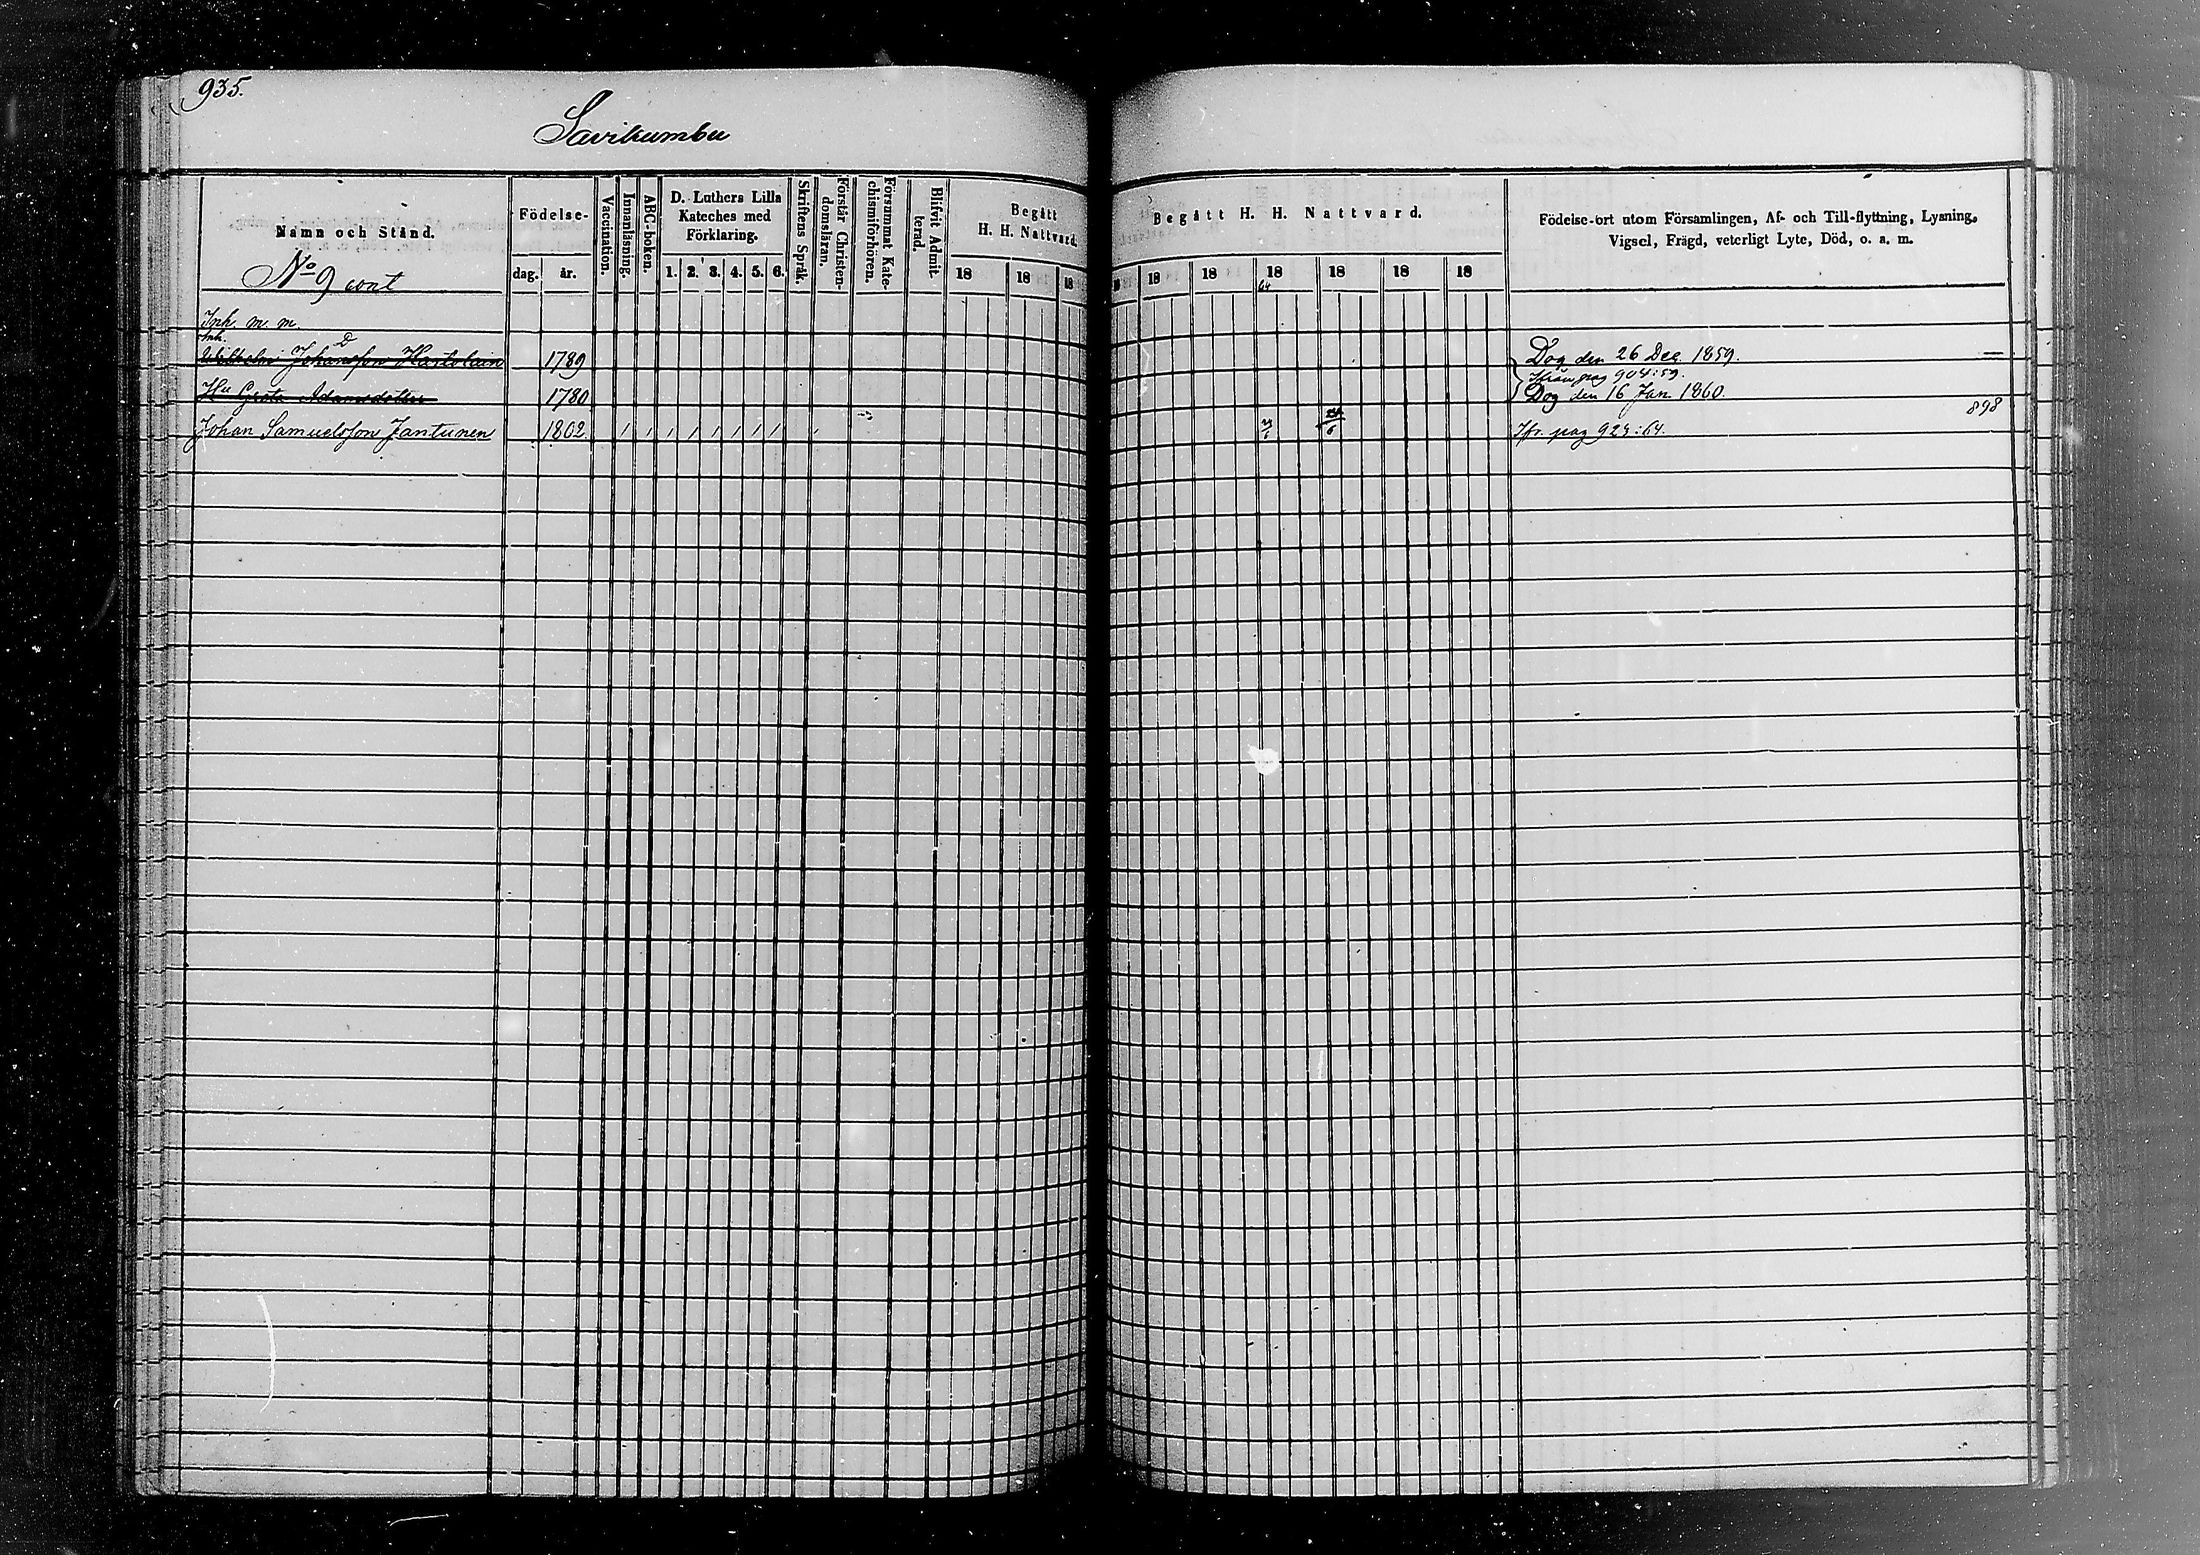 935.
Savikumbu
Namn och Stånd.
Födelse-
dag.
år.
Vaccination.
Innanläsning.
ABC-boken.
D. Luthers Lilla
Kateches med
Förklaring.
1. 2. 3. 4. 5. 6.
Skriftens Språk.
Förstår Christen-
domsläran.
Försummat Kate-
chismiförhören.
Blifvit Admit-
terad.
Begått
H. H. Nattvard.
18 18 18
Begått H. H. Nattvard.
18 18 18 18 18 18
64
Födelse-ort utom Församlingen, Af- och Till-flyttning, Lysning,
Vigsel, Frägd, veterligt Lyte, Död, o. a. m.
No 9 cont
Inh. m. m.
Inh.
Wilhelm Johansson Hartolain 1789 Dog den 26 Dec. 1859. —
Ifrån pag 904:59.
Hu Greta Adamsdotter 1780 Dog den 16 Jan. 1860.
898
Johan Samuelsson Jantunen 1802 Ifr. pag 923:64.